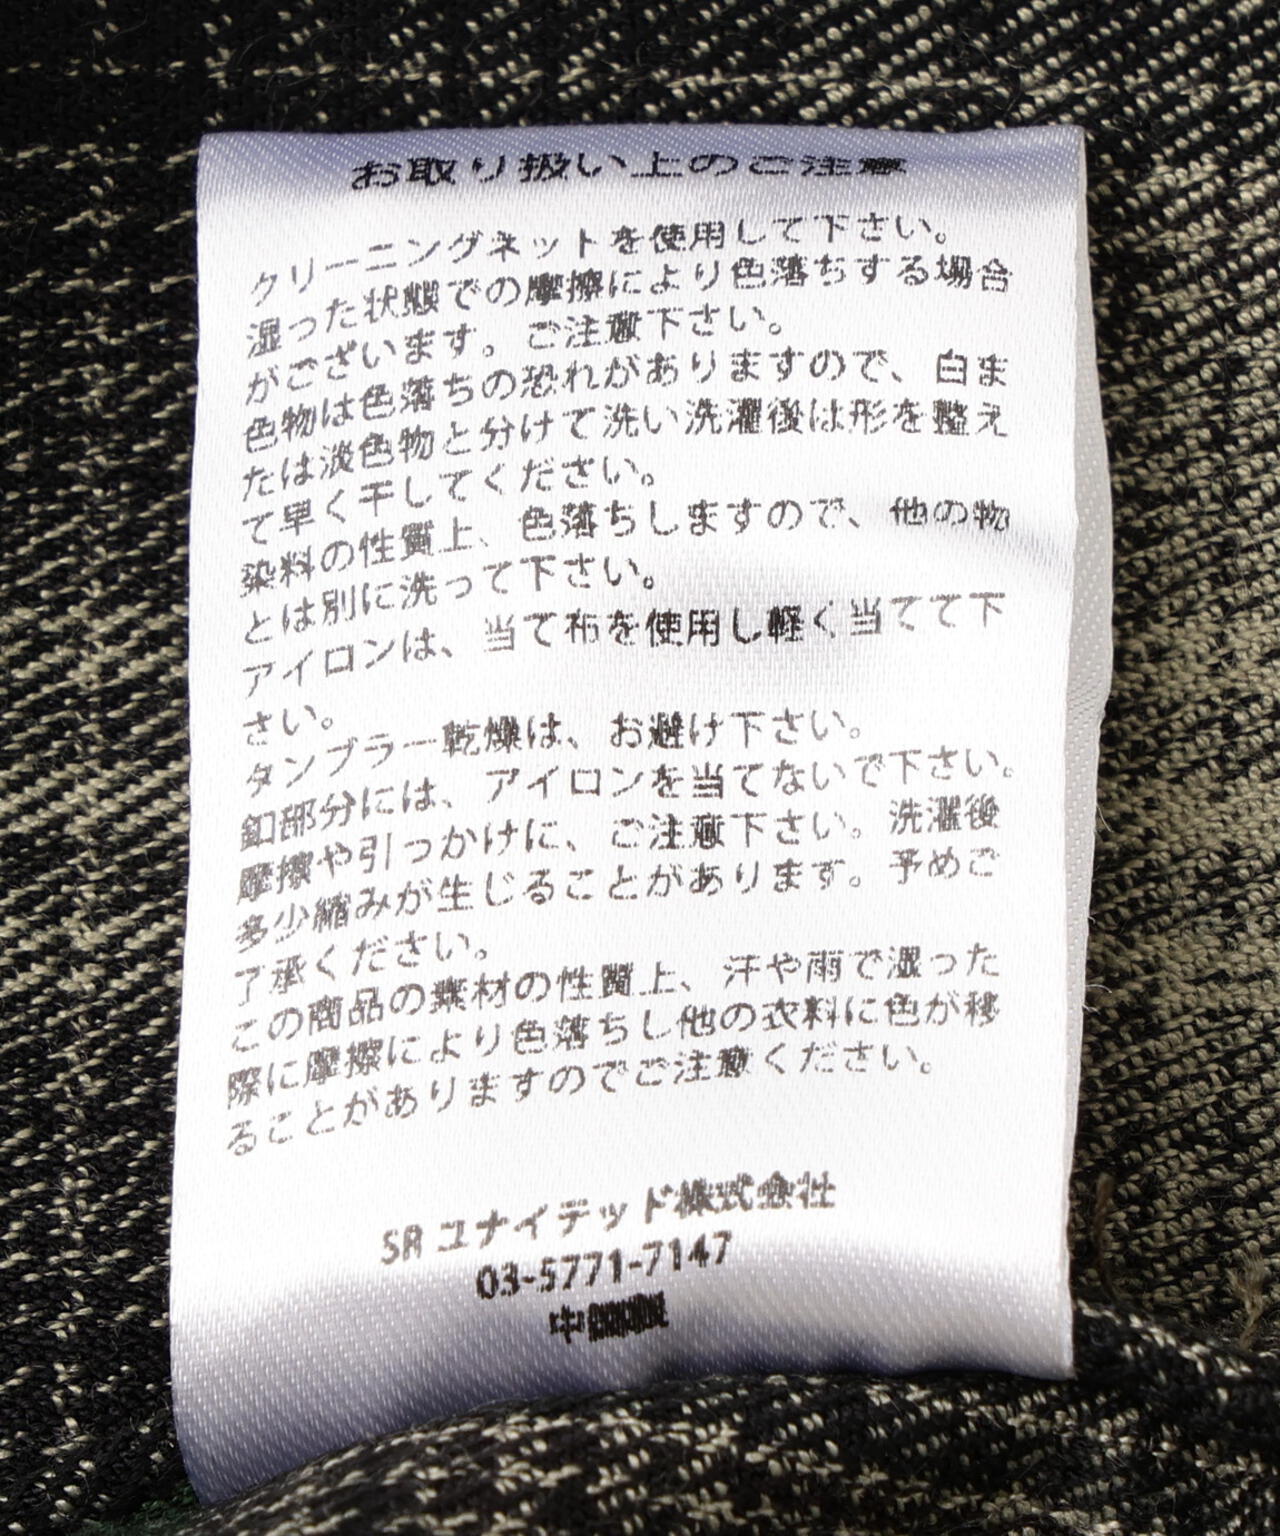 お取り扱い上のご注意
クリーニングネットを使用して下さい。
湿った状態での摩擦により色落ちする場合
がございます。ご注意下さい。
色物は色落ちの恐れがありますので、白ま
たは淡色物と分けて洗い洗濯後は形を整え
て早く干してください。
染料の性質上、色落ちしますので、他の物
とは別に洗って下さい。
アイロンは、当て布を使用し軽く当てて下
さい。
タンブラー乾燥は、お避け下さい。
釦部分には、アイロンを当てないで下さい。
摩擦や引っかけに、ご注意下さい。洗濯後
多少縮みが生じることがあります。予めご
了承ください。
この商品の素材の性質上、汗や雨で湿った
際に摩擦により色落ちし他の衣料に色が移
ることがありますのでご注意ください。
SR ユナイテッド株式会社
03-5771-7147
中国製